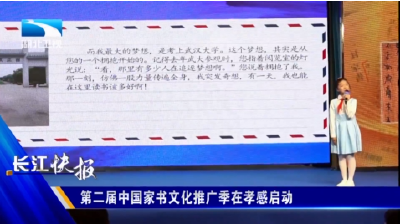 而我最大的梦想，是考上武汉大学。这个梦想，其实是从
您的一个拥抱开始的。记得去年武大参观时，您指着阅览室的灯
光说：“看，那里有多少人在追逐梦想啊。”您说着拥抱了我。
那一刻，仿佛一股力量传遍全身，我突发奇想，有一天，我也能
在这里读书该多好啊！
长江快报
第二届中国家书文化推广季在孝感启动